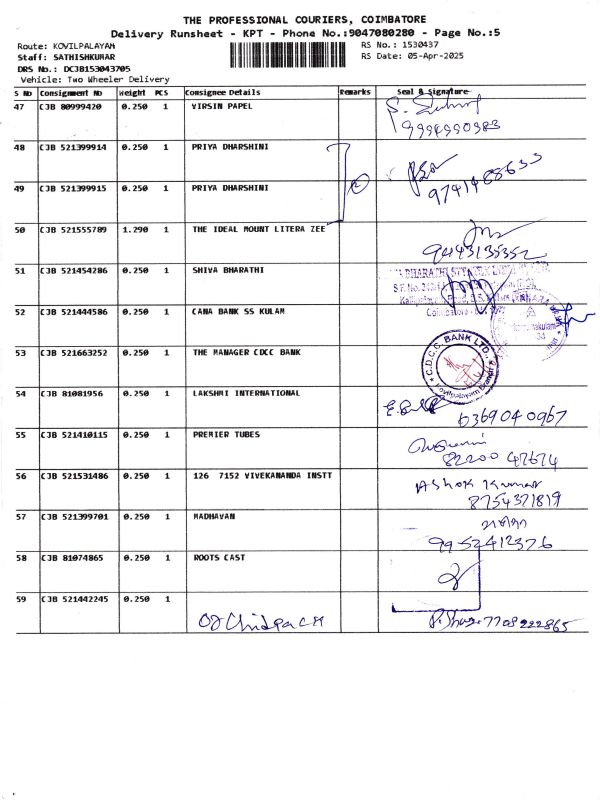 THE PROFESSIONAL COURIERS, COIMBATORE
Delivery Runsheet - KPT - Phone No.:9047080280 - Page No.:5
Route: KOVILPALAYAM
RS No.: 1530437
Staff: SATHISHKUMAR
RS Date: 05-Apr-2025
DRS No.: DCJB153043705
Vehicle: Two Wheeler Delivery
S No Consignment No Weight PCS Consignee Details Remarks Seal & Signature
47 CJB 80999420 0.250 1 VIRSIN PAPEL
9994990983
48 CJB 521399914 0.250 1 PRIYA DHARSHINI
49 CJB 521399915 0.250 1 PRIYA DHARSHINI
2
9741488633
50 CJB 521555789 1.290 1 THE IDEAL MOUNT LITERA ZEE
9443135352
51 CJB 521454286 0.250 1 SHIVA BHARATHI
52 CJB 521444586 0.250 1 CANA BANK SS KULAM
53 CJB 521663252 0.250 1 THE MANAGER CDCC BANK
C.D.C.C. BANK LTD.,
Kovilpalayam Branch
54 CJB 81081956 0.250 1 LAKSHMI INTERNATIONAL
6369040967
55 CJB 521410115 0.250 1 PREMIER TUBES
82200 47674
56 CJB 521531486 0.250 1 126 7152 VIVEKANANDA INSTT
Ashok Kumar
8754371819
57 CJB 521399701 0.250 1 MADHAVAN
9952412376
58 CJB 81074865 0.250 1 ROOTS CAST
59 CJB 521442245 0.250 1
7708222865